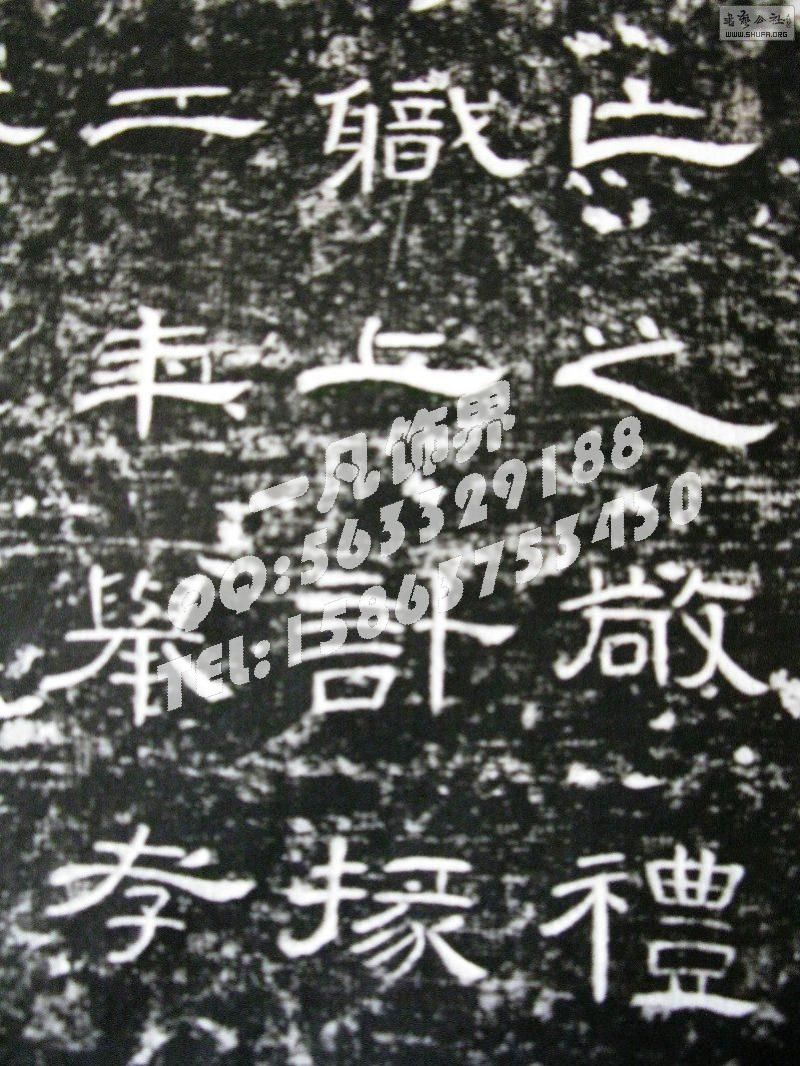 亡之敬禮
職上計掾
二年舉孝
一凡饰界
QQ:563329188
TEL:15863753430
书艺公社
WWW.SHUFA.ORG